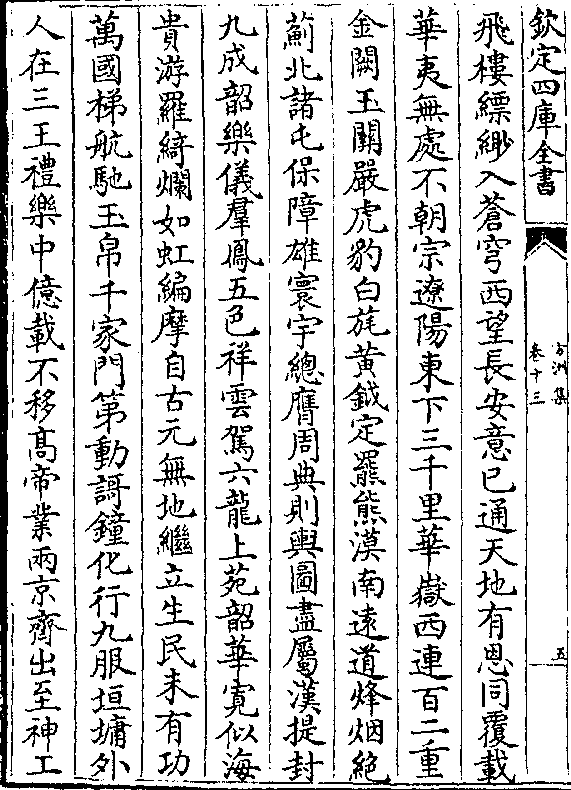 欽定四庫全書
方洲集
卷十三
五
飛樓縹緲入蒼穹西望長安意已通天地有恩同覆載
華夷無處不朝宗遼陽東下三千里華嶽西連百二重
金闕玉關嚴虎豹白旄黃鉞定羆熊漠南遠道烽烟絶
薊北諸屯保障雄寰宇總膺周典則輿圖盡屬漢提封
九成韶樂儀羣鳳五色祥雲駕六龍上苑韶華寛似海
貴游羅綺爛如虹編摩自古元無地繼立生民未有功
萬國梯航馳玉帛千家門第動謌鐘化行九服垣墉外
人在三王禮樂中億載不移髙帝業兩京齊出至神工